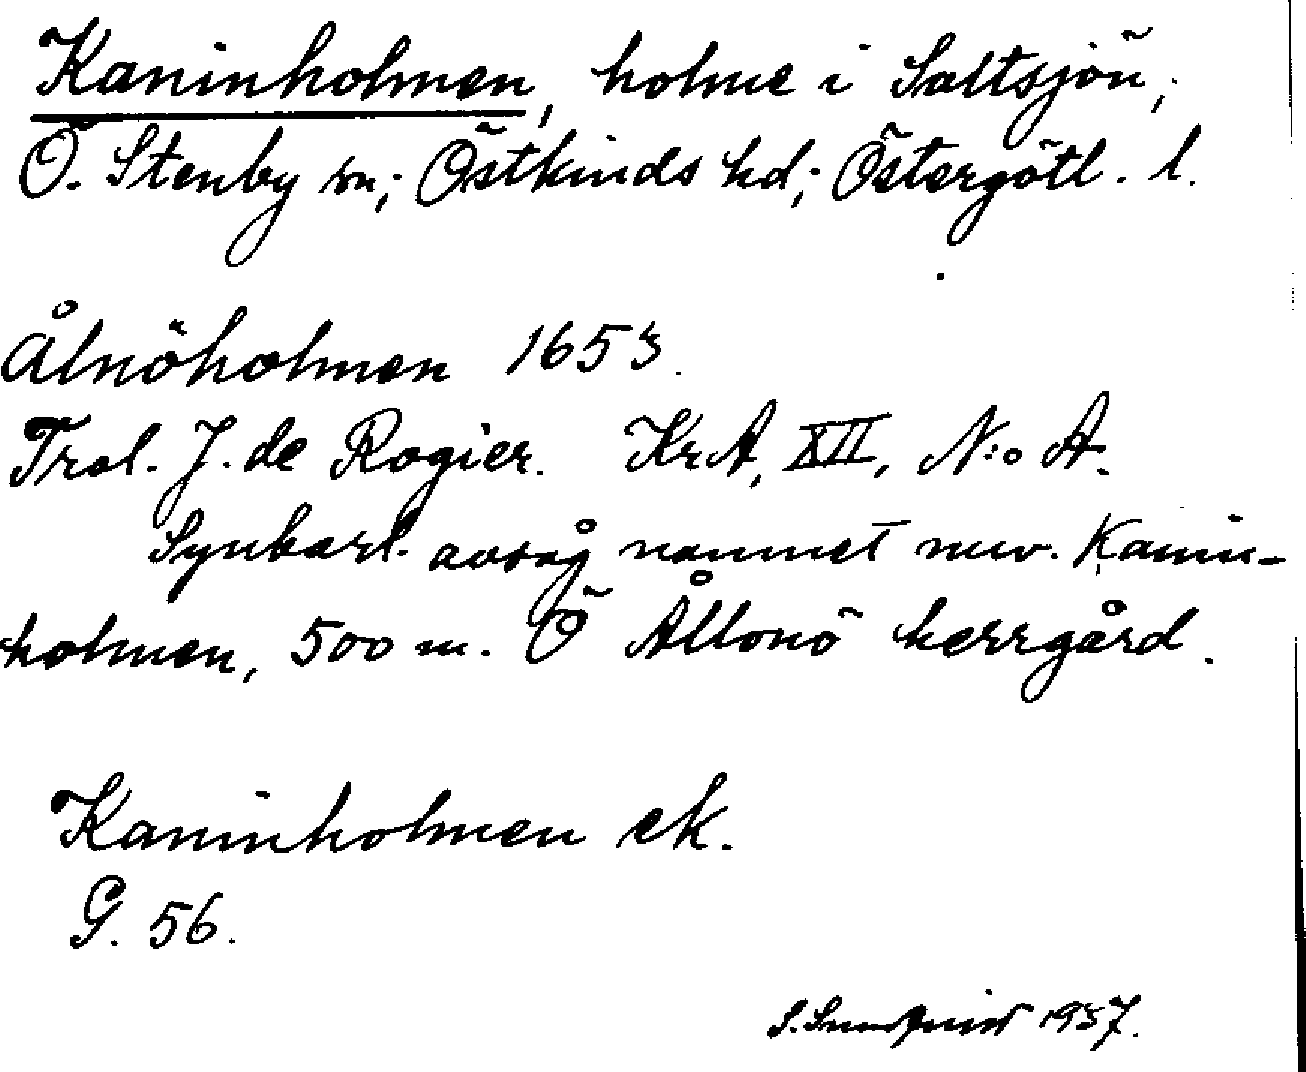 Kaninholmen, holme i Saltsjön;
Ö. Stenby sn; Östkinds hd; Östergötl. l.
Ålnöholmen 1653.
Trol. J. de Rogier. KrA, XII, N:o A.
Synbarl. avsåg namnet nuv. Kanin-
holmen, 500 m. Ö Ållonö herrgård.
Kaninholmen ek.
G. 56.
S. 1937.